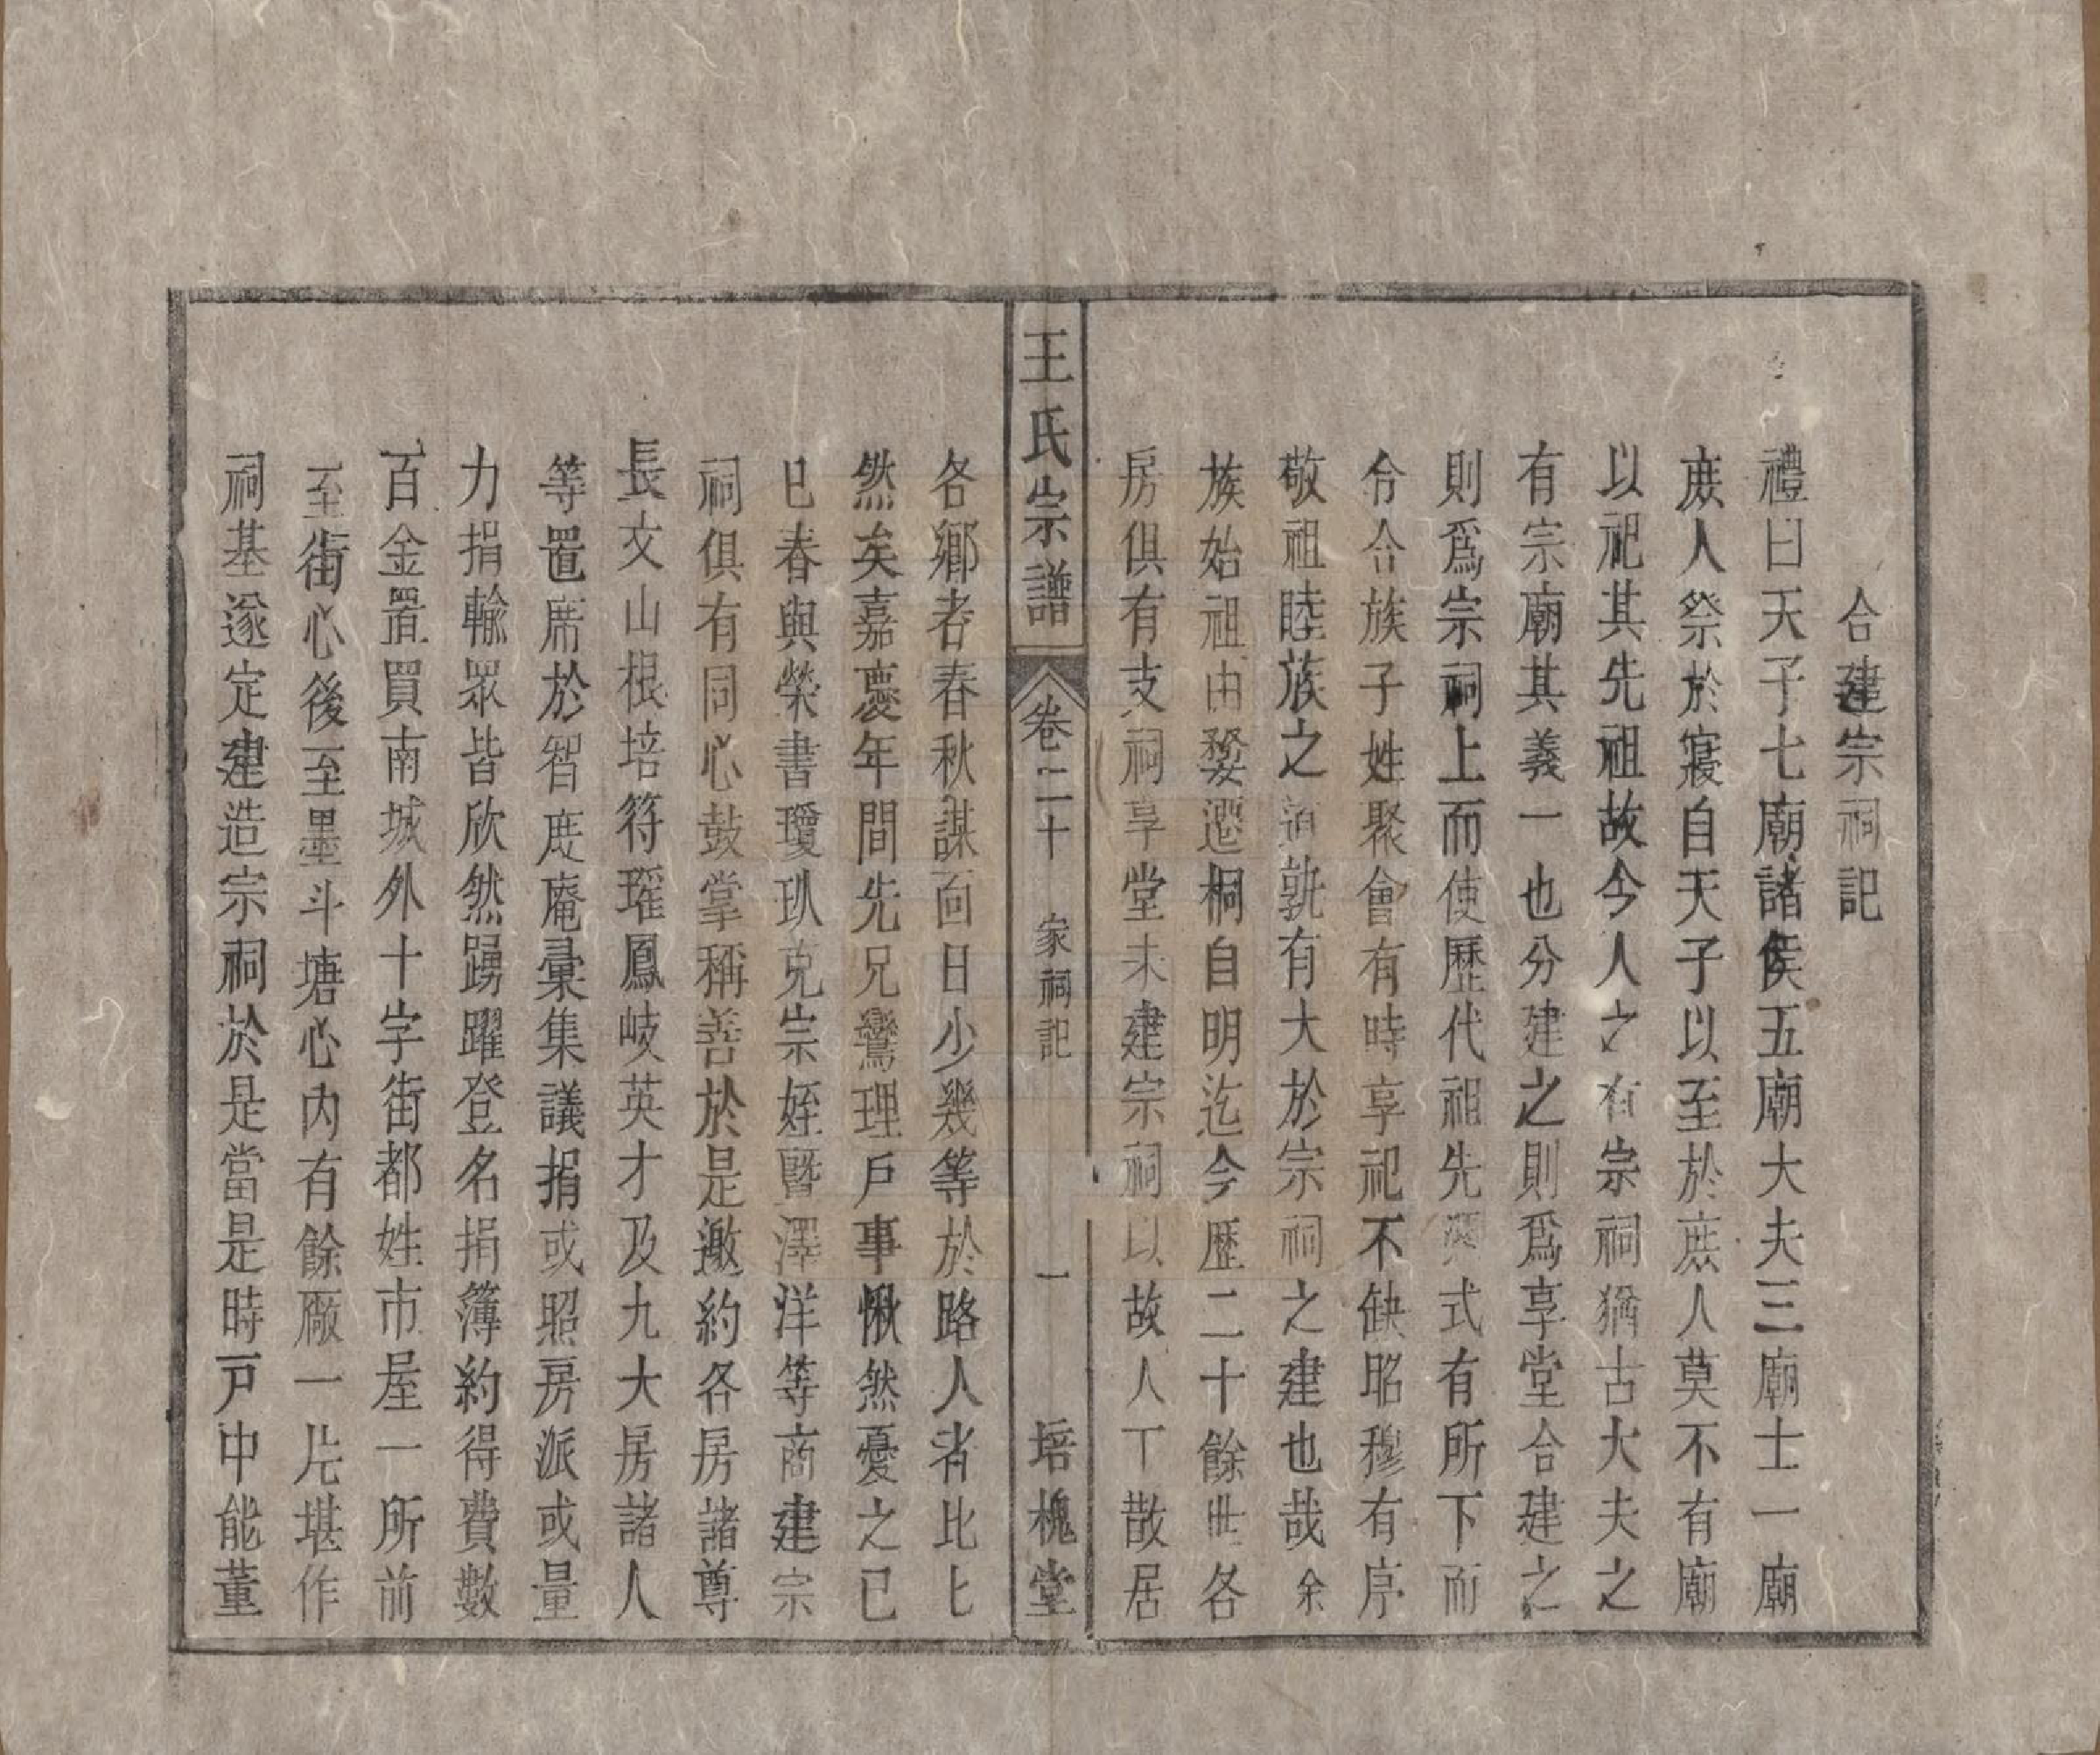 合建宗祠記
禮曰天子七廟諸侯五廟大夫三廟士一廟
庶人祭於寢自天子以至於庶人莫不有廟
以祀其先祖故今人之有宗祠猶古大夫之
有宗廟其義一也分建之則爲享堂合建之
則爲宗祠上而使歷代祖先憑式有所下而
令合族子姓聚會有時享祀不缺昭穆有序
敬祖睦族之道孰有大於宗祠之建也哉余
族始祖由婺遷桐自明迄今歷二十餘世各
房俱有支祠享堂未建宗祠以故人丁散居
王氏宗譜
卷二十
家祠記
一
培槐堂
各鄉者春秋謀面日少幾等於路人者比比
然矣嘉慶年間先兄鸞理戶事愀然憂之已
巳春與榮書瓊玐克宗姪暨澤洋等商建宗
祠俱有同心鼓掌稱善於是邀約各房諸尊
長文山根培符璀鳳岐英才及九大房諸人
等置席於智度庵彙集議捐或照房派或量
力捐輸眾皆欣然踴躍登名捐簿約得費數
百金置買南城外十字街都姓市屋一所前
至街心後至墨斗塘心內有餘廠一片堪作
祠基遂定建造宗祠於是當是時戶中能董